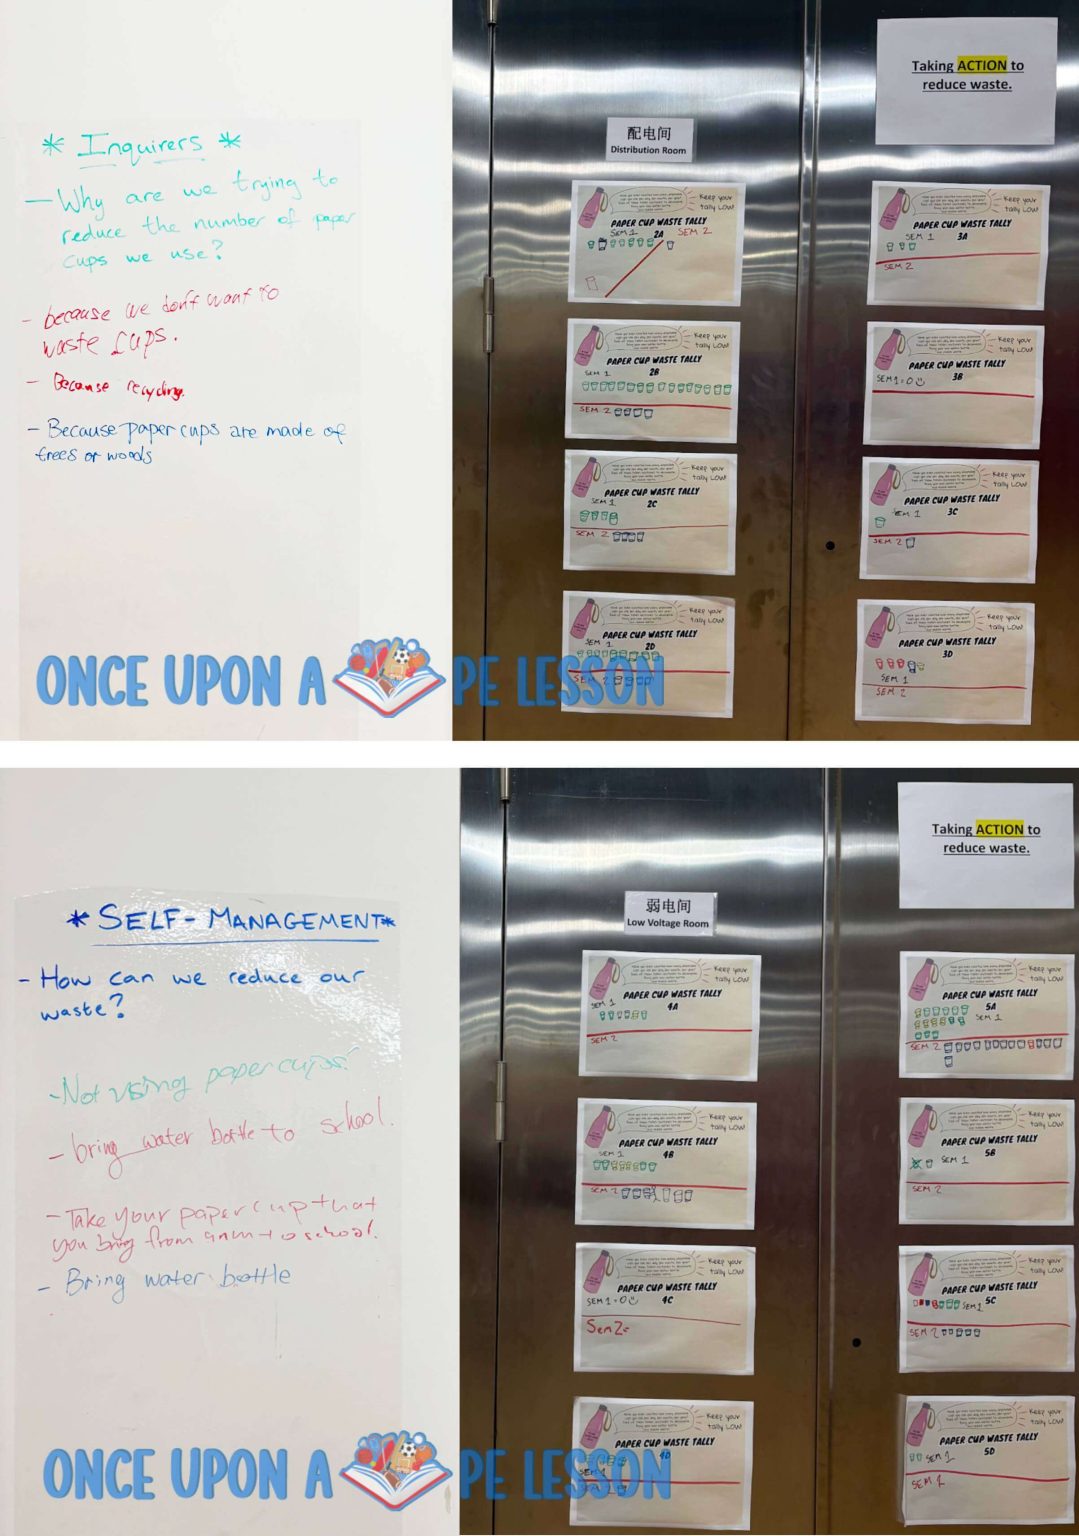 * Inquirers *
- Why are we trying to
reduce the number of paper
cups we use?
- because we don't want to
waste cups.
- Because recycling.
- Because paper cups are made of
trees or woods
Taking ACTION to
reduce waste.
配电间
Distribution Room
Keep your
tally LOW!
PAPER CUP WASTE TALLY
SEM 1 2A SEM 2
Keep your
tally LOW!
PAPER CUP WASTE TALLY
SEM 1 3A
SEM 2
Keep your
tally LOW!
PAPER CUP WASTE TALLY
SEM 1 2B
SEM 2
Keep your
tally LOW!
PAPER CUP WASTE TALLY
SEM 1 = 0 3B
Keep your
tally LOW!
PAPER CUP WASTE TALLY
SEM 1 2C
SEM 2
Keep your
tally LOW!
PAPER CUP WASTE TALLY
SEM 1 3C
SEM 2
Keep your
tally LOW!
PAPER CUP WASTE TALLY
SEM 1 2D
SEM 2
Keep your
tally LOW!
PAPER CUP WASTE TALLY
3D
SEM 1
SEM 2
ONCE UPON A PE LESSON
* SELF-MANAGEMENT *
- How can we reduce our
waste?
- Not using paper cups!
- bring water bottle to school.
- Take your paper cup that
you bring from to school.
- Bring water bottle
Taking ACTION to
reduce waste.
弱电间
Low Voltage Room
Keep your
tally LOW!
PAPER CUP WASTE TALLY
SEM 1 4A
SEM 2
Keep your
tally LOW!
PAPER CUP WASTE TALLY
5A
SEM 1
SEM 2
Keep your
tally LOW!
PAPER CUP WASTE TALLY
SEM 1 4B
SEM 2
Keep your
tally LOW!
PAPER CUP WASTE TALLY
5B
SEM 1
SEM 2
Keep your
tally LOW!
PAPER CUP WASTE TALLY
SEM 1 = 0 4C
Sem 2=
Keep your
tally LOW!
PAPER CUP WASTE TALLY
SEM 1 5C
SEM 2
Keep your
tally LOW!
PAPER CUP WASTE TALLY
4D
SEM 1
SEM 2
Keep your
tally LOW!
PAPER CUP WASTE TALLY
5D
SEM 1
SEM 1
ONCE UPON A PE LESSON